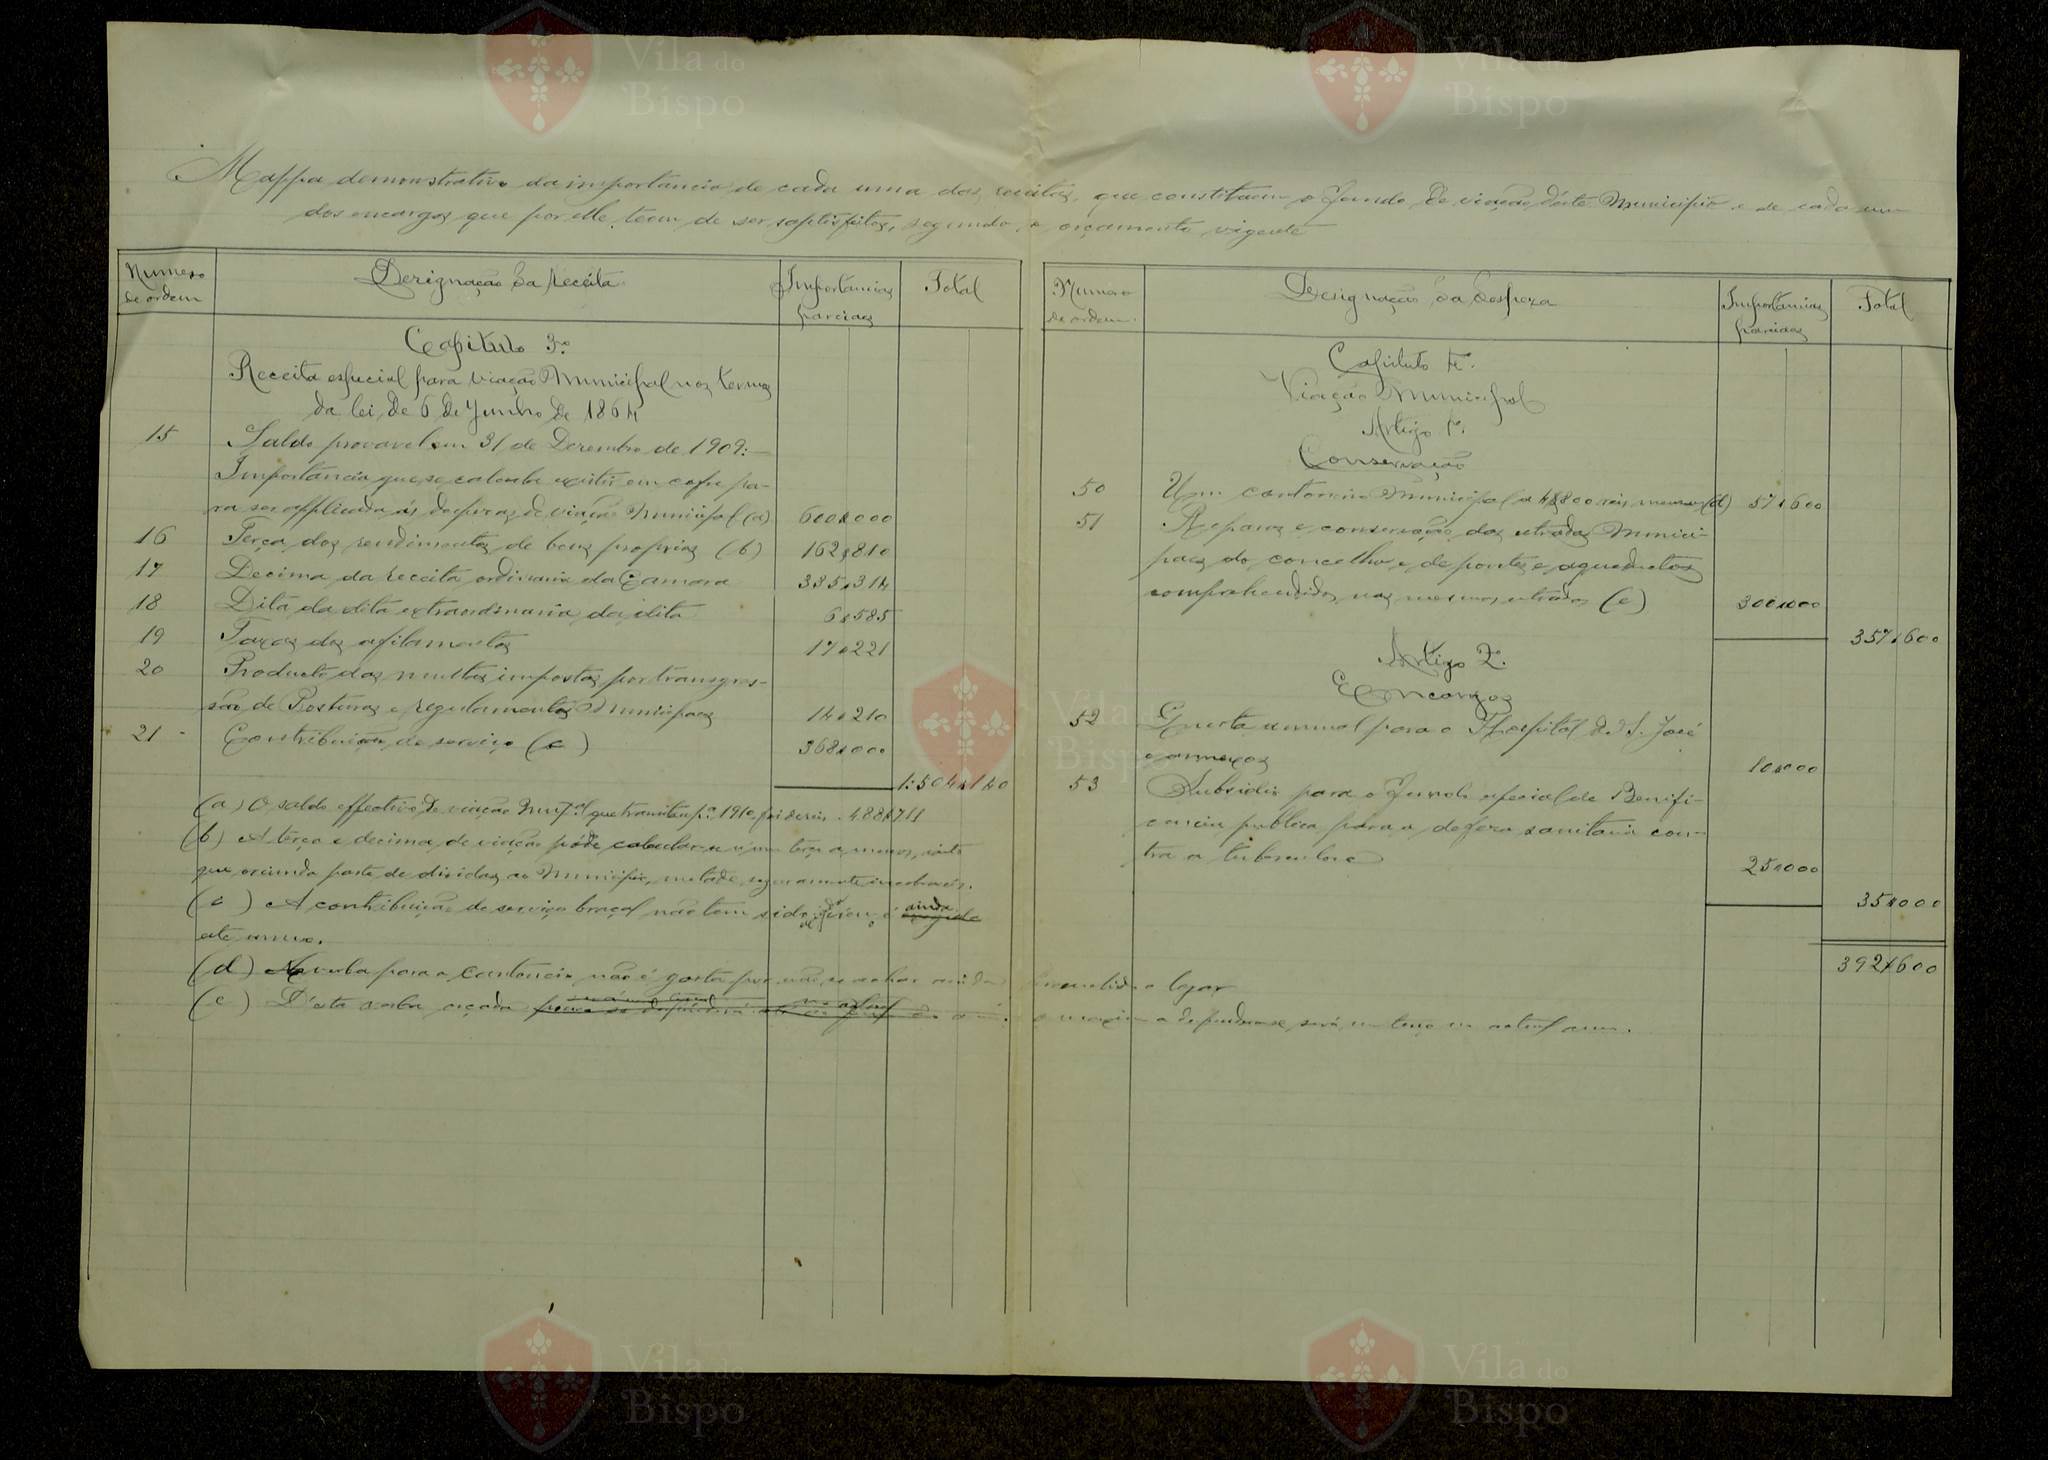 Mappa demonstrativo da importancia de cada uma das receitas, que constituem o Fundo de viação d'este Municipio e de cada um
dos encargos que por elle teem de ser satisfeitos, segundo o orçamento vigente
Numero de ordem
Designação da receita
Importancias parciaes
Total
Capitulo 3.º
Receita especial para viação Municipal nos termos
da lei de 6 de Junho de 1864
15 Saldo provavel em 31 de Dezembro de 1909:—
Importancia que se calcula existir em cofre pa-
ra ser applicada ás despezas de viação Municipal (a) 600$000
16 Terça dos rendimentos de bens proprios (b) 162$810
17 Decima da receita ordinaria da Camara 335$314
18 Dita da dita extraordinaria da dita 6$585
19 Taxas dos afilamentos 17$221
20 Producto das multas impostas por transgres-
são de Posturas e regulamentos Municipaes 14$210
21 Contribuição de serviço (c) 368$000
1:504$140
(a) O saldo effectivo de viação Mun.al que transitou p.a 1910 foi de reis 488$711
(b) A terça e decima de viação póde calcular-se um terço a menos, visto
que oriunda parte de dividas ao Municipio, metade seguramente incobraveis.
(c) A contribuição de serviço braçal não tem sido ainda
ate
(d) A verba para o cantoneiro não é gasta por não se achar ainda o logar
(e) D'esta verba orçada o maximo a despender-se será um terço no actual anno.
Numero de ordem
Designação da despeza
Importancias parciaes
Total
Capitulo 4.º
Viação Municipal
Artigo 1.º
Conservação
50 Um cantoneiro Municipal a 4$800 reis mensaes (d) 57$600
51 Reparos e conservação das estradas Munici-
paes do concelho e de pontes e aqueductos
comprehendidos nas mesmas estradas (e) 300$000
357$600
Artigo 2.º
Encargos
52 Quota annual para o Hospital de S. José
e annexos 10$000
53 Subsidio para o Fundo especial de Benifi-
cencia publica para a defeza sanitaria con-
tra a tuberculose 25$000
35$000
392$600
Vila do
Bispo
Vila do
Bispo
Vila do
Bispo
Vila do
Bispo
Vila do
Bispo